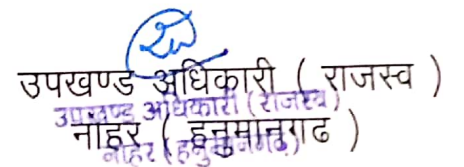 उपखण्ड अधिकारी ( राजस्व )
उपखण्ड अधिकारी (राजस्व)
नोहर ( हनुमानगढ )
नोहर (हनुमानगढ)